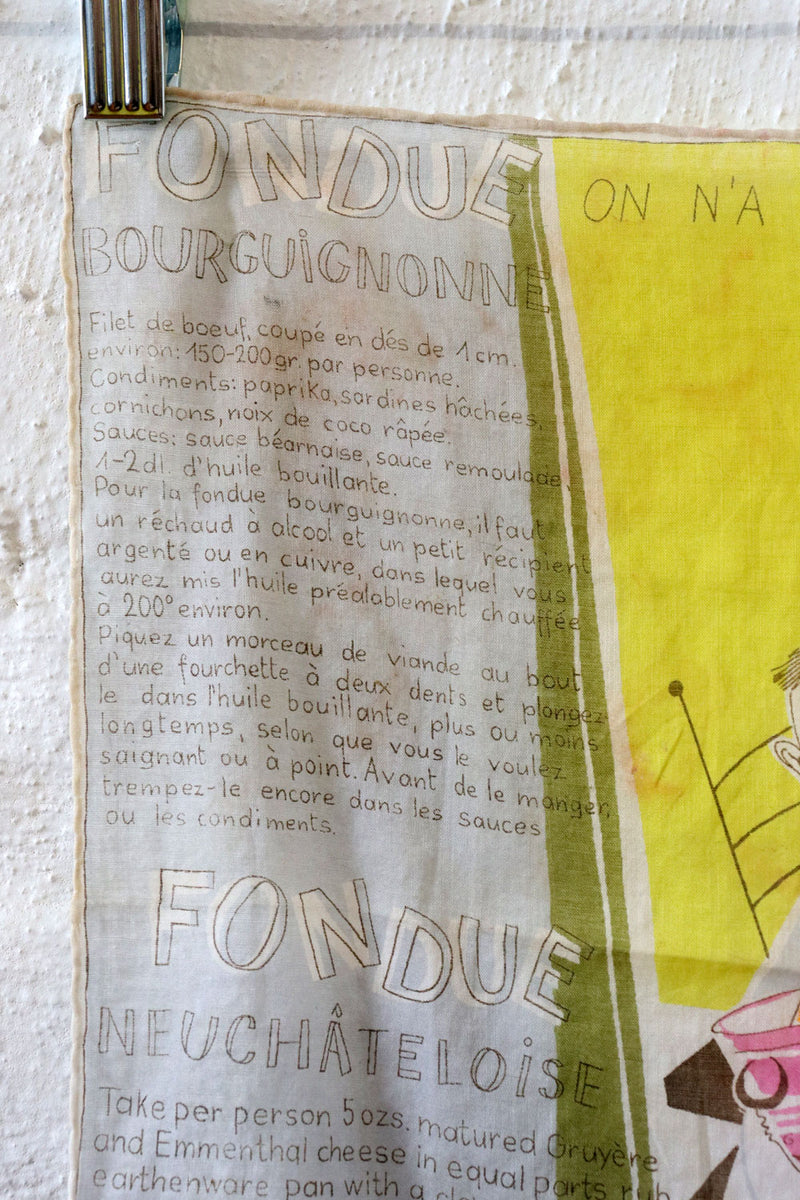 FONDUE
BOURGUIGNONNE
Filet de boeuf, coupé en dés de 1 cm.
environ: 150-200gr. par personne.
Condiments: paprika, sardines hâchées,
cornichons, noix de coco râpée.
Sauces: sauce béarnaise, sauce remoulade,
1-2 dl. d'huile bouillante.
Pour la fondue bourguignonne, il faut
un réchaud à alcool et un petit récipient
argenté ou en cuivre, dans lequel vous
aurez mis l'huile préalablement chauffée
à 200° environ.
Piquez un morceau de viande au bout
d'une fourchette à deux dents et plongez-
le dans l'huile bouillante, plus ou moins
longtemps, selon que vous le voulez
saignant ou à point. Avant de le manger,
trempez-le encore dans les sauces
ou les condiments.
FONDUE
NEUCHÂTELOISE
Take per person 5 ozs. matured Gruyère
and Emmenthal cheese in equal parts, rub
earthenware pan with a
ON N'A